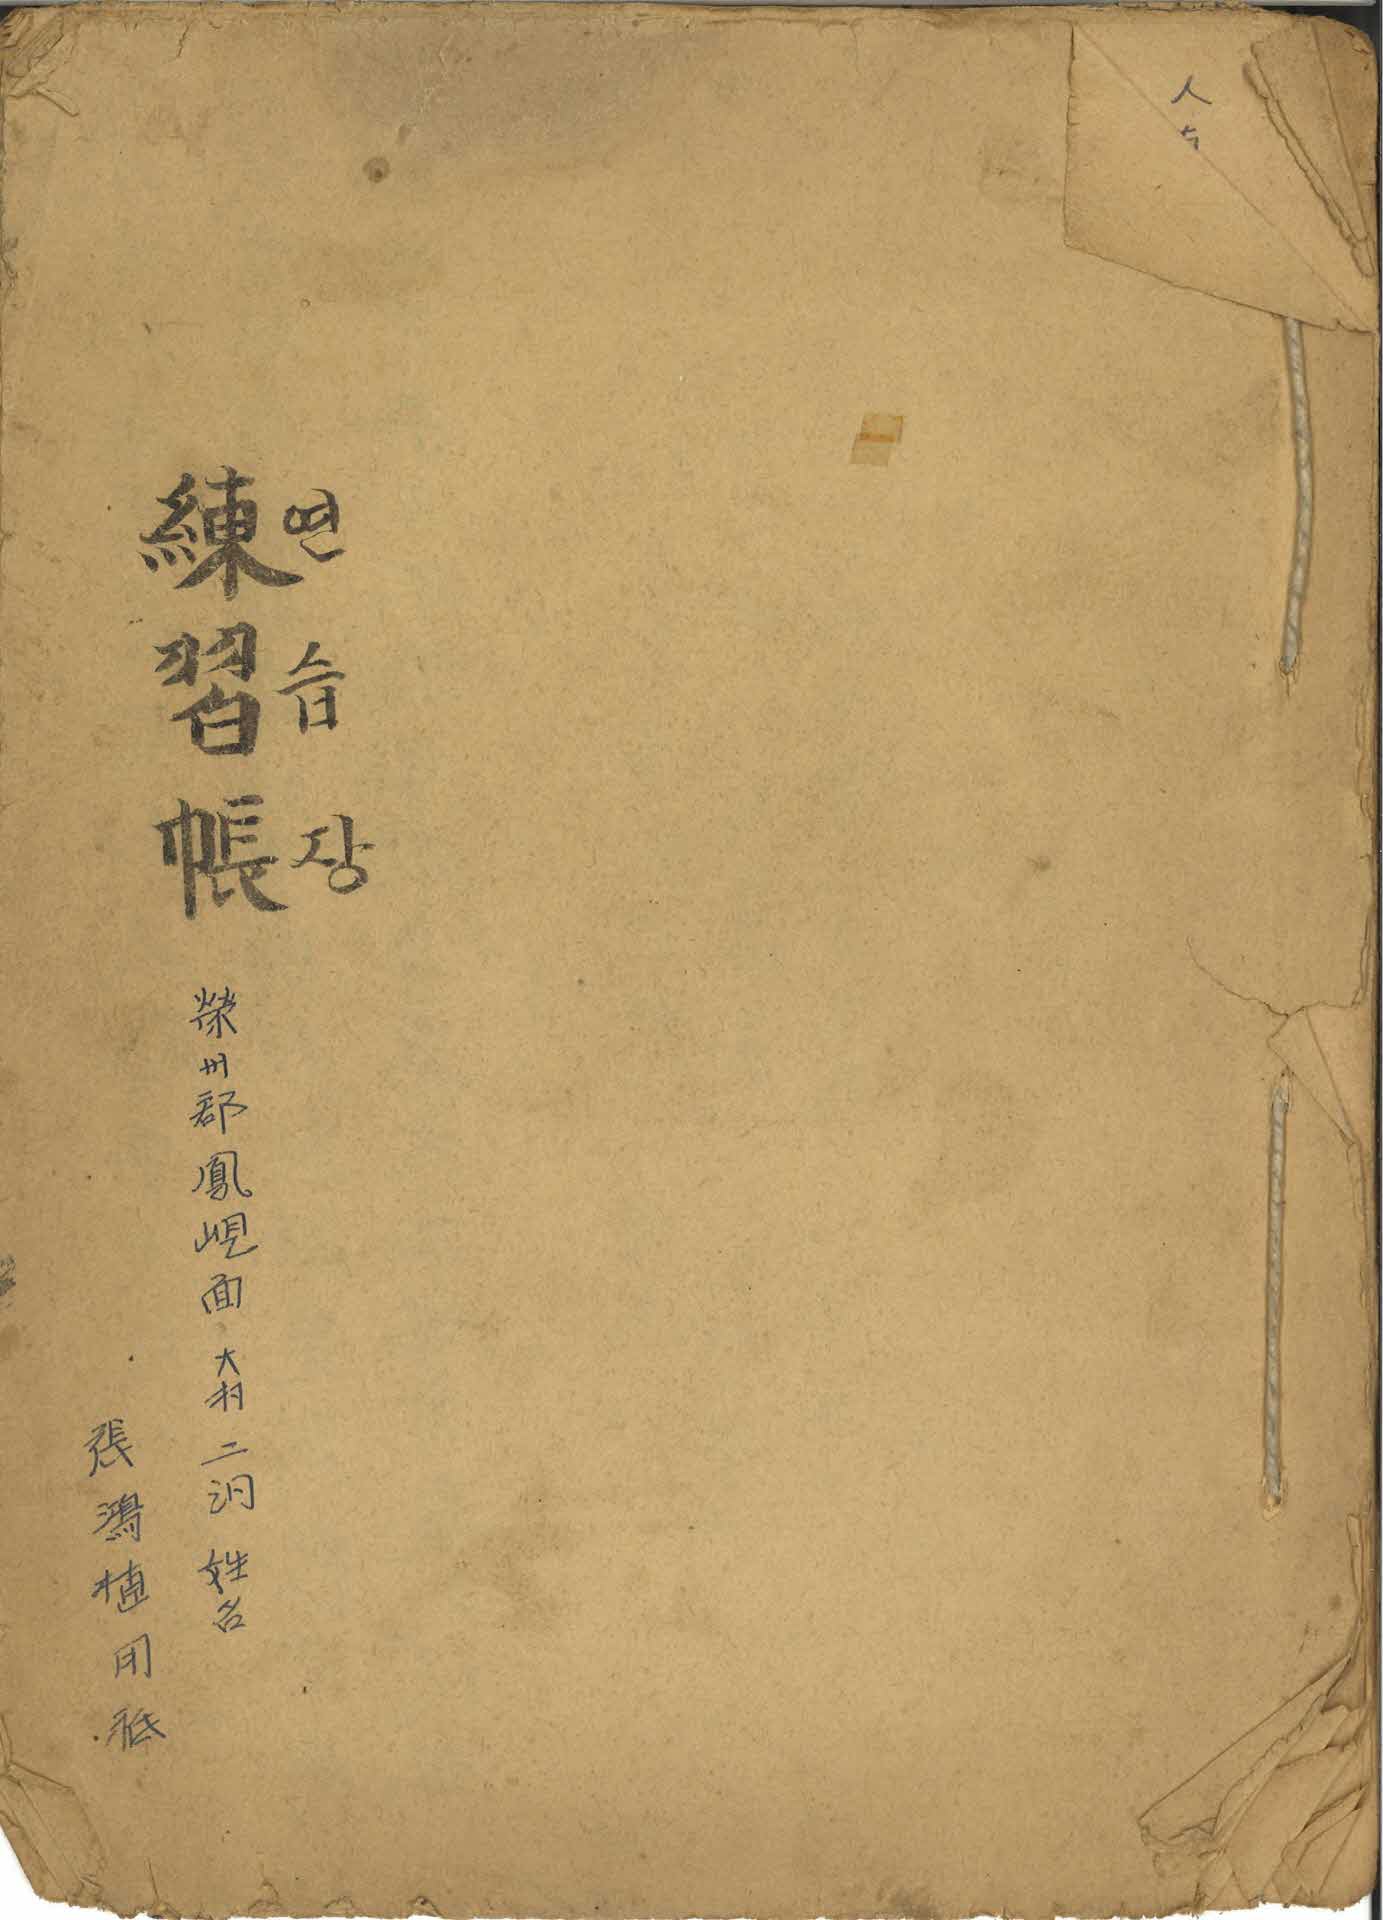 연습장
練習帳
榮州郡鳳峴面大村二洞 姓名
張鴻植用紙
人